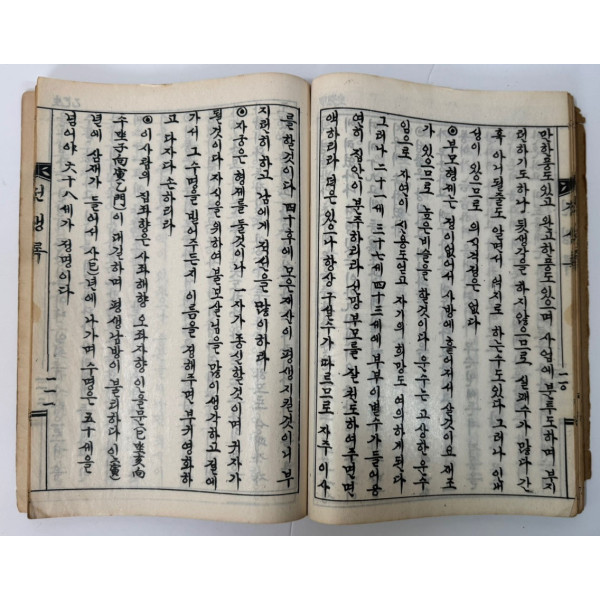 만하품도있고 완고한품도있으며 사업에 분투도하며 부지
런하기도하나 뒷생각을 하지않으므로 실패수가 많다 간
혹 아니될줄도 알면서 여치로 하는수도있다 그러나 인내
성이 있으므로 의식걱정은 없다
◎부모형제는 정이없어서 사방에 흩어져서 살것이요 재조
가 있으므로 높은비슬을 할것이다 운수는 고상한운수
임으로 자연이 신용도얻고 자기의 희망도 여의하게된다
그러나 二十一세 三十七세 四十三세에 부부이별수가들어옹
연히 집안이 분주하리라 선망부모를 잘 천도하여주면면
액하리라 덕은있으나 항상 구설수가 따르므로 자주 이사
二十
를할것이다 四十후에 모은재산이 평생지킨것이니 부
지런히 하고 남에게 적선을 많이하라
◎자궁은 형제를 둘것이나 一자가 종신할것이며 귀자가
될것이다 자식을 위하여 불보살님을 많이생각하고 절에
가서 그수명을 빌어주든지 이름을 정해주면 부귀영화하
고 다자다손하리라
◎이사람의 집좌향은 사좌해향 오좌자향 인용문(巳坐亥向
午坐子向寅乙門)이 대길하며 평생남방이 불리하다 인(寅)
년에 삼재가 들어서 사(巳)년에 나가며 수명은 五十세을
넘어야 六十八세가 정명이다
전생록
二一